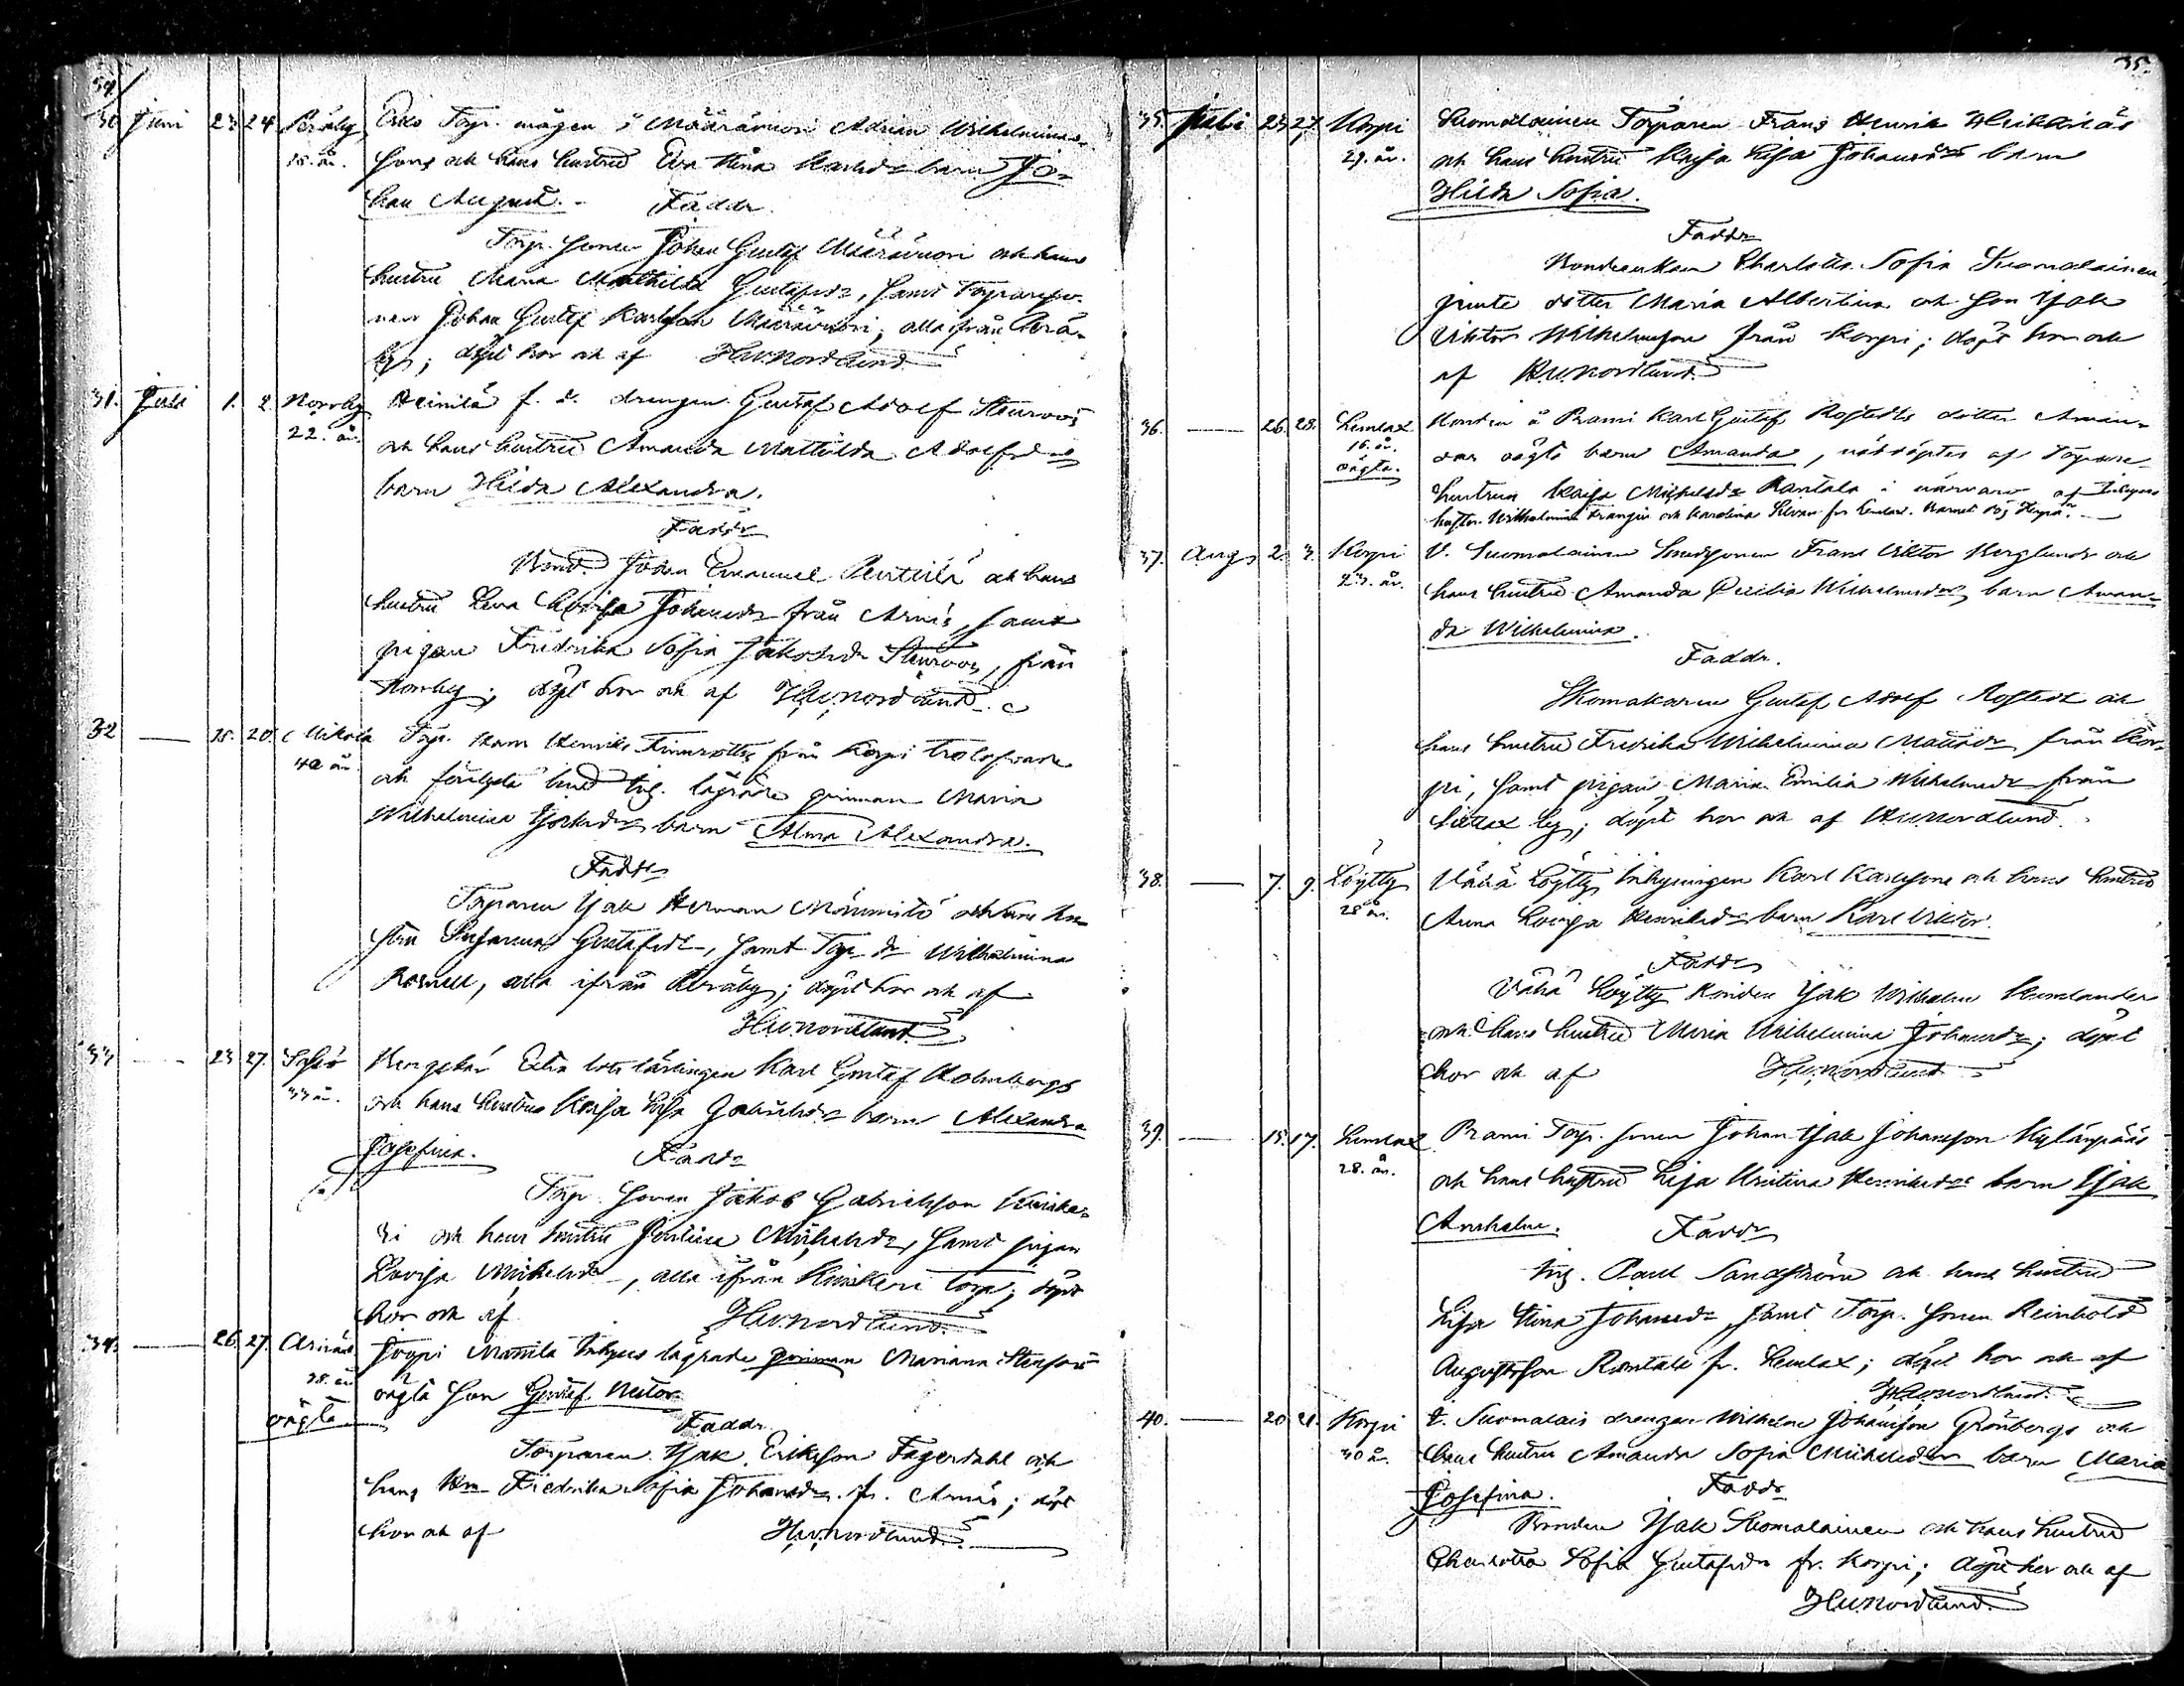 34.
30. Juni 23. 24. Peräby Eriks Torp. mågen i Määrävuori Adrian Wilhelmins-
25. år. sons och hans hustru Eva Stina Karlsdr barn Jo-
han August. Faddr.
Torp. sonen Johan Gustaf Määrävuori och hans
hustru Maria Mathilda Gustafsdr, samt Torpareso-
nen Johan Gustaf Karlsson Määrävuori, alla från Perä-
by; döpt hor och af HWNordlund.
31. Juli 1. 2. Norrby Heinilä f. d. drengen Gustaf Adolf Stenroos
22. år. och hans hustru Amanda Mattilda Adolfsdr
barn Hilda Alexandra.
Faddr
Bond. Johan Emanuel Penttilä och hans
hustru Lena Lovisa Johansdr från Arnäs, samt
pigan Fredrika Sofia Jakobsdr Stenroos, från
Norrby; döpt hor och af HWNordlund.
32 — 15. 20. Mikola Torp. Henriks från Korpi trolofvade
40 år och Inh. lägrade qvinnan Maria
Wilhelmina Isaksdr barn Alma Alexandra.
Faddr
Torparen Isak Herman Männistö och hans hu-
stru Susanna Gustafsdr, samt Torp. dr Wilhelmina
Rosnell, alla ifrån Peräby; döpt hor och af
HWNordlund.
33 — 23 27. Extra lots lärlingen Karl Gustaf Holmbergs
33 år. och hans hustru Kajsa Lisa Gabrielsdr barn Alexandra
Josefina. Faddr
Torp. sonen Jakob Gabrielsson
och hans hustru Justina Michelsdr, samt pigan
Lovisa Michelsdr, alla ifrån torp; döpt
hor och af HWNordlund.
34. — 26. 27. Arnäs Joopi Mattila Inhyses lägrade qvinnan Mariana
28. år oägta son Gustaf Nestor
oägta Faddr
Torparen Isak Eriksson Fagerdahl och
hans Hu Fredrika Sofia Johansdr fr. Arnäs; döpt
hor och af HWNordlund.
35.
35. Juli 23 27. Korpi Suomalainen Torparen Frans Henrik Heikkiläs
29. år. och hans hustru Kajsa Lisa Johansdr barn
Hilda Sofia.
Faddr
Bondenkan Charlotta Sofia Suomalainen
jemte dotter Maria Albertina och son Isak
Viktor Wilhelmsson från Korpi; döpt hor och
af HWNordlund.
36. — 26. 28. Lemlax Bonden å Prami Karl Gustaf Rostedts dotter Aman-
16. år. das oägta barn Amanda, nöddöptes af Torpare
oägta. hustrun Kajsa Michelsdr Rantala i närvaro af
Wilhelmina och Karolina fr Lemlax. Barnet dog
37. Augs 2. 3. Korpi V. Suomalainen Smedssonen Frans Viktor Berglunds och
23. år. hans hustru Amanda Cecilia Wilhelmsdr barn Aman-
da Wilhelmina.
Faddr.
Skomakaren Gustaf Adolf Rostedt och
hans hustru Fredrika Wilhelmina Mattsdr från Kor-
pi, samt pigan Maria Emilia Wilhelmsdr från
by; döpt hor och af HWNordlund.
38. — 7. 9. Löytty Vähä Löytty Inhysingen Karl Karlssons och hans hustrus
28 år. Anna Lovisa Henriksdr barn Karl Viktor.
Faddr
Vähä Löytty Bonden Isak Wilhelm Hemlander
och hans hustru Maria Wilhelmina Johansdr; döpt
hor och af HWNordlund
39. — 15. 17. Lemlax Prami Torp. sonen Johan Isak Johansson Kylänpääs
28. år. och hans hustru Lisa Kristina Henriksdr barn Isak
Anshelm. Faddr
Inh. Karl Sandström och hans hustru
Lisa Stina Johansdr, samt Torp. sonen Reinhold
Augustsson Rantala fr. Lemlax; döpt hor och af
HWNordlund.
40. — 20. 21. Korpi V. Suomalais drengen Wilhelm Johansson Grönbergs och
30 år. hans hustru Amanda Sofia Michelsdr barn Maria
Josefina. Faddr
Bonden Isak Suomalainen och hans hustru
Charlotta Sofia Gustafsdr fr. Korpi; döpt hor och af
HWNordlund.